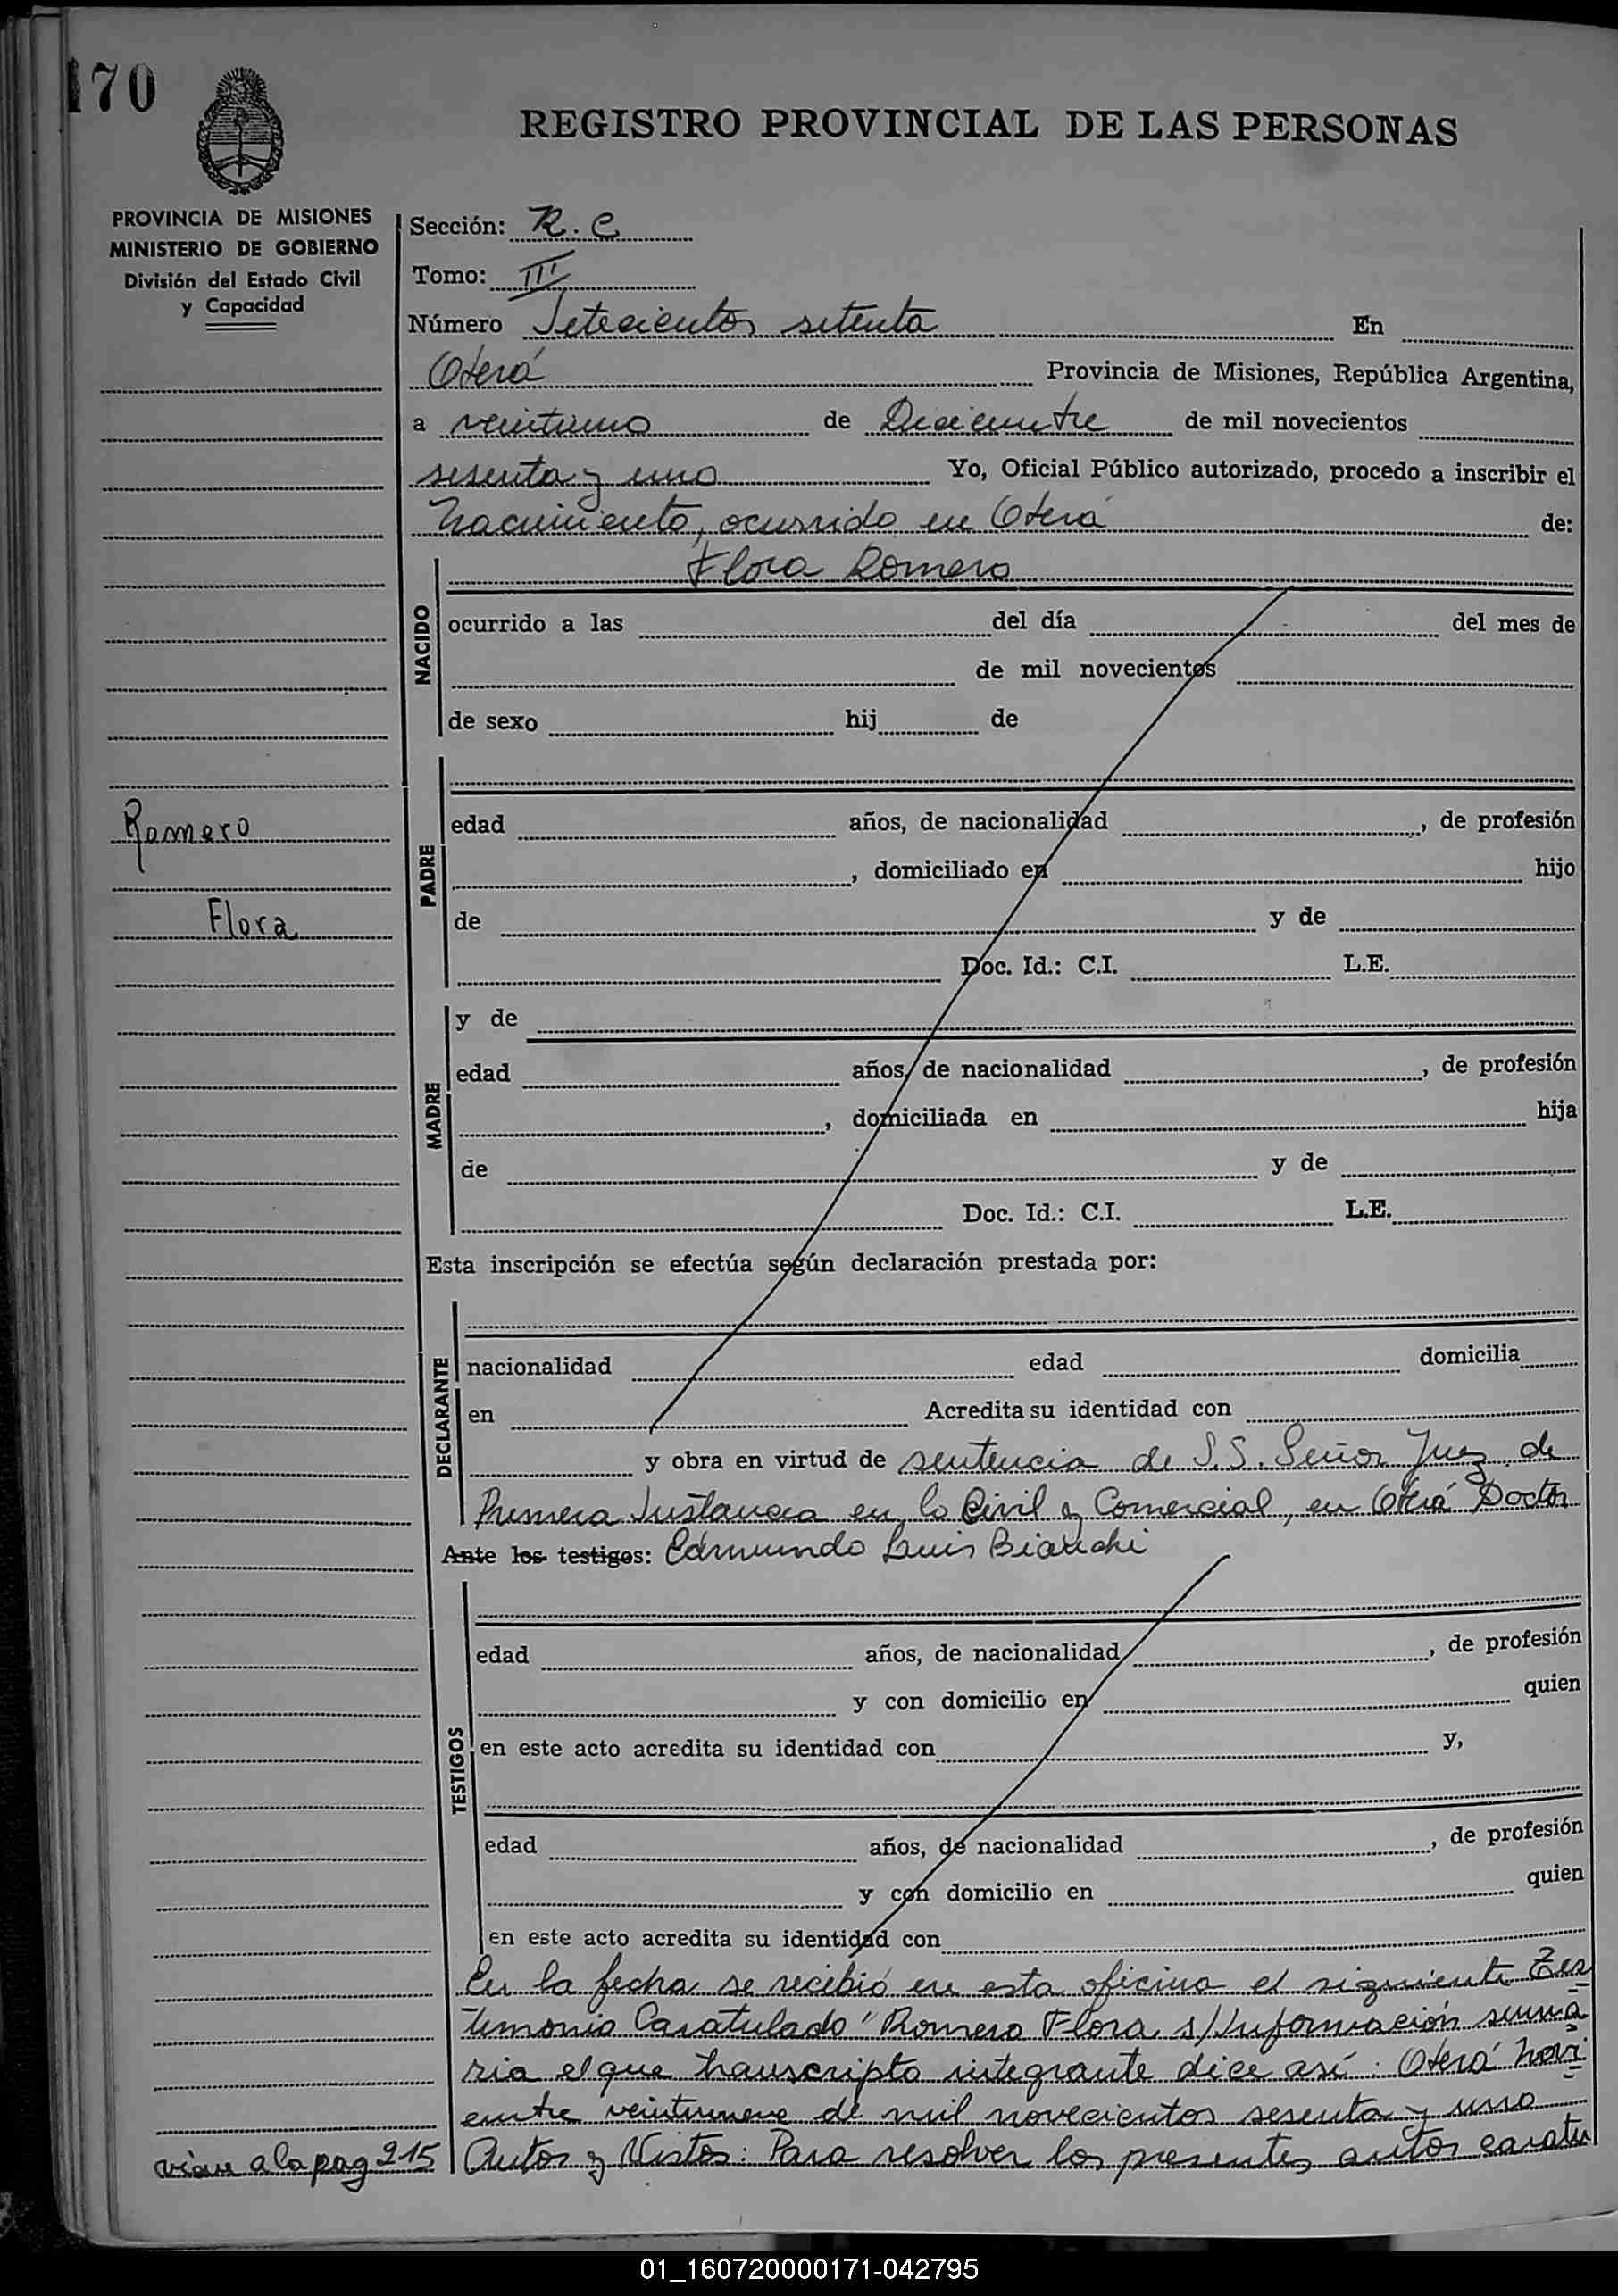 170
REGISTRO PROVINCIAL DE LAS PERSONAS
PROVINCIA DE MISIONES
MINISTERIO DE GOBIERNO
División del Estado Civil
y Capacidad
Sección: R. C
Tomo: III
Número Setecientos setenta En
Oberá Provincia de Misiones, República Argentina,
a veintiuno de Diciembre de mil novecientos
sesenta y uno Yo, Oficial Público autorizado, procedo a inscribir el
Nacimiento, ocurrido en Oberá de:
Flora Romero
NACIDO
ocurrido a las del día del mes de
de mil novecientos
de sexo hij de
Romero
Flora
PADRE
edad años, de nacionalidad , de profesión
, domiciliado en hijo
de y de
Doc. Id.: C.I. L.E.
MADRE
y de
edad años, de nacionalidad , de profesión
, domiciliada en hija
de y de
Doc. Id.: C.I. L.E.
Esta inscripción se efectúa según declaración prestada por:
DECLARANTE
nacionalidad edad domicilia
en Acredita su identidad con
y obra en virtud de sentencia de S.S. Señor Juez de
Primera Instancia en lo Civil y Comercial, en Oberá Doctor
Ante los testigos: Edmundo Luis Bianchi
TESTIGOS
edad años, de nacionalidad , de profesión
y con domicilio en quien
en este acto acredita su identidad con y,
edad años, de nacionalidad , de profesión
y con domicilio en quien
en este acto acredita su identidad con
En la fecha se recibió en esta oficina el siguiente Tes
timonio Caratulado "Romero Flora s/Información suma
ria el que transcripto integrante dice así: Oberá novi
embre veintinueve de mil novecientos sesenta y uno
Autos y Vistos: Para resolver los presentes autos caratu
viene a la pag 215
01_160720000171-042795